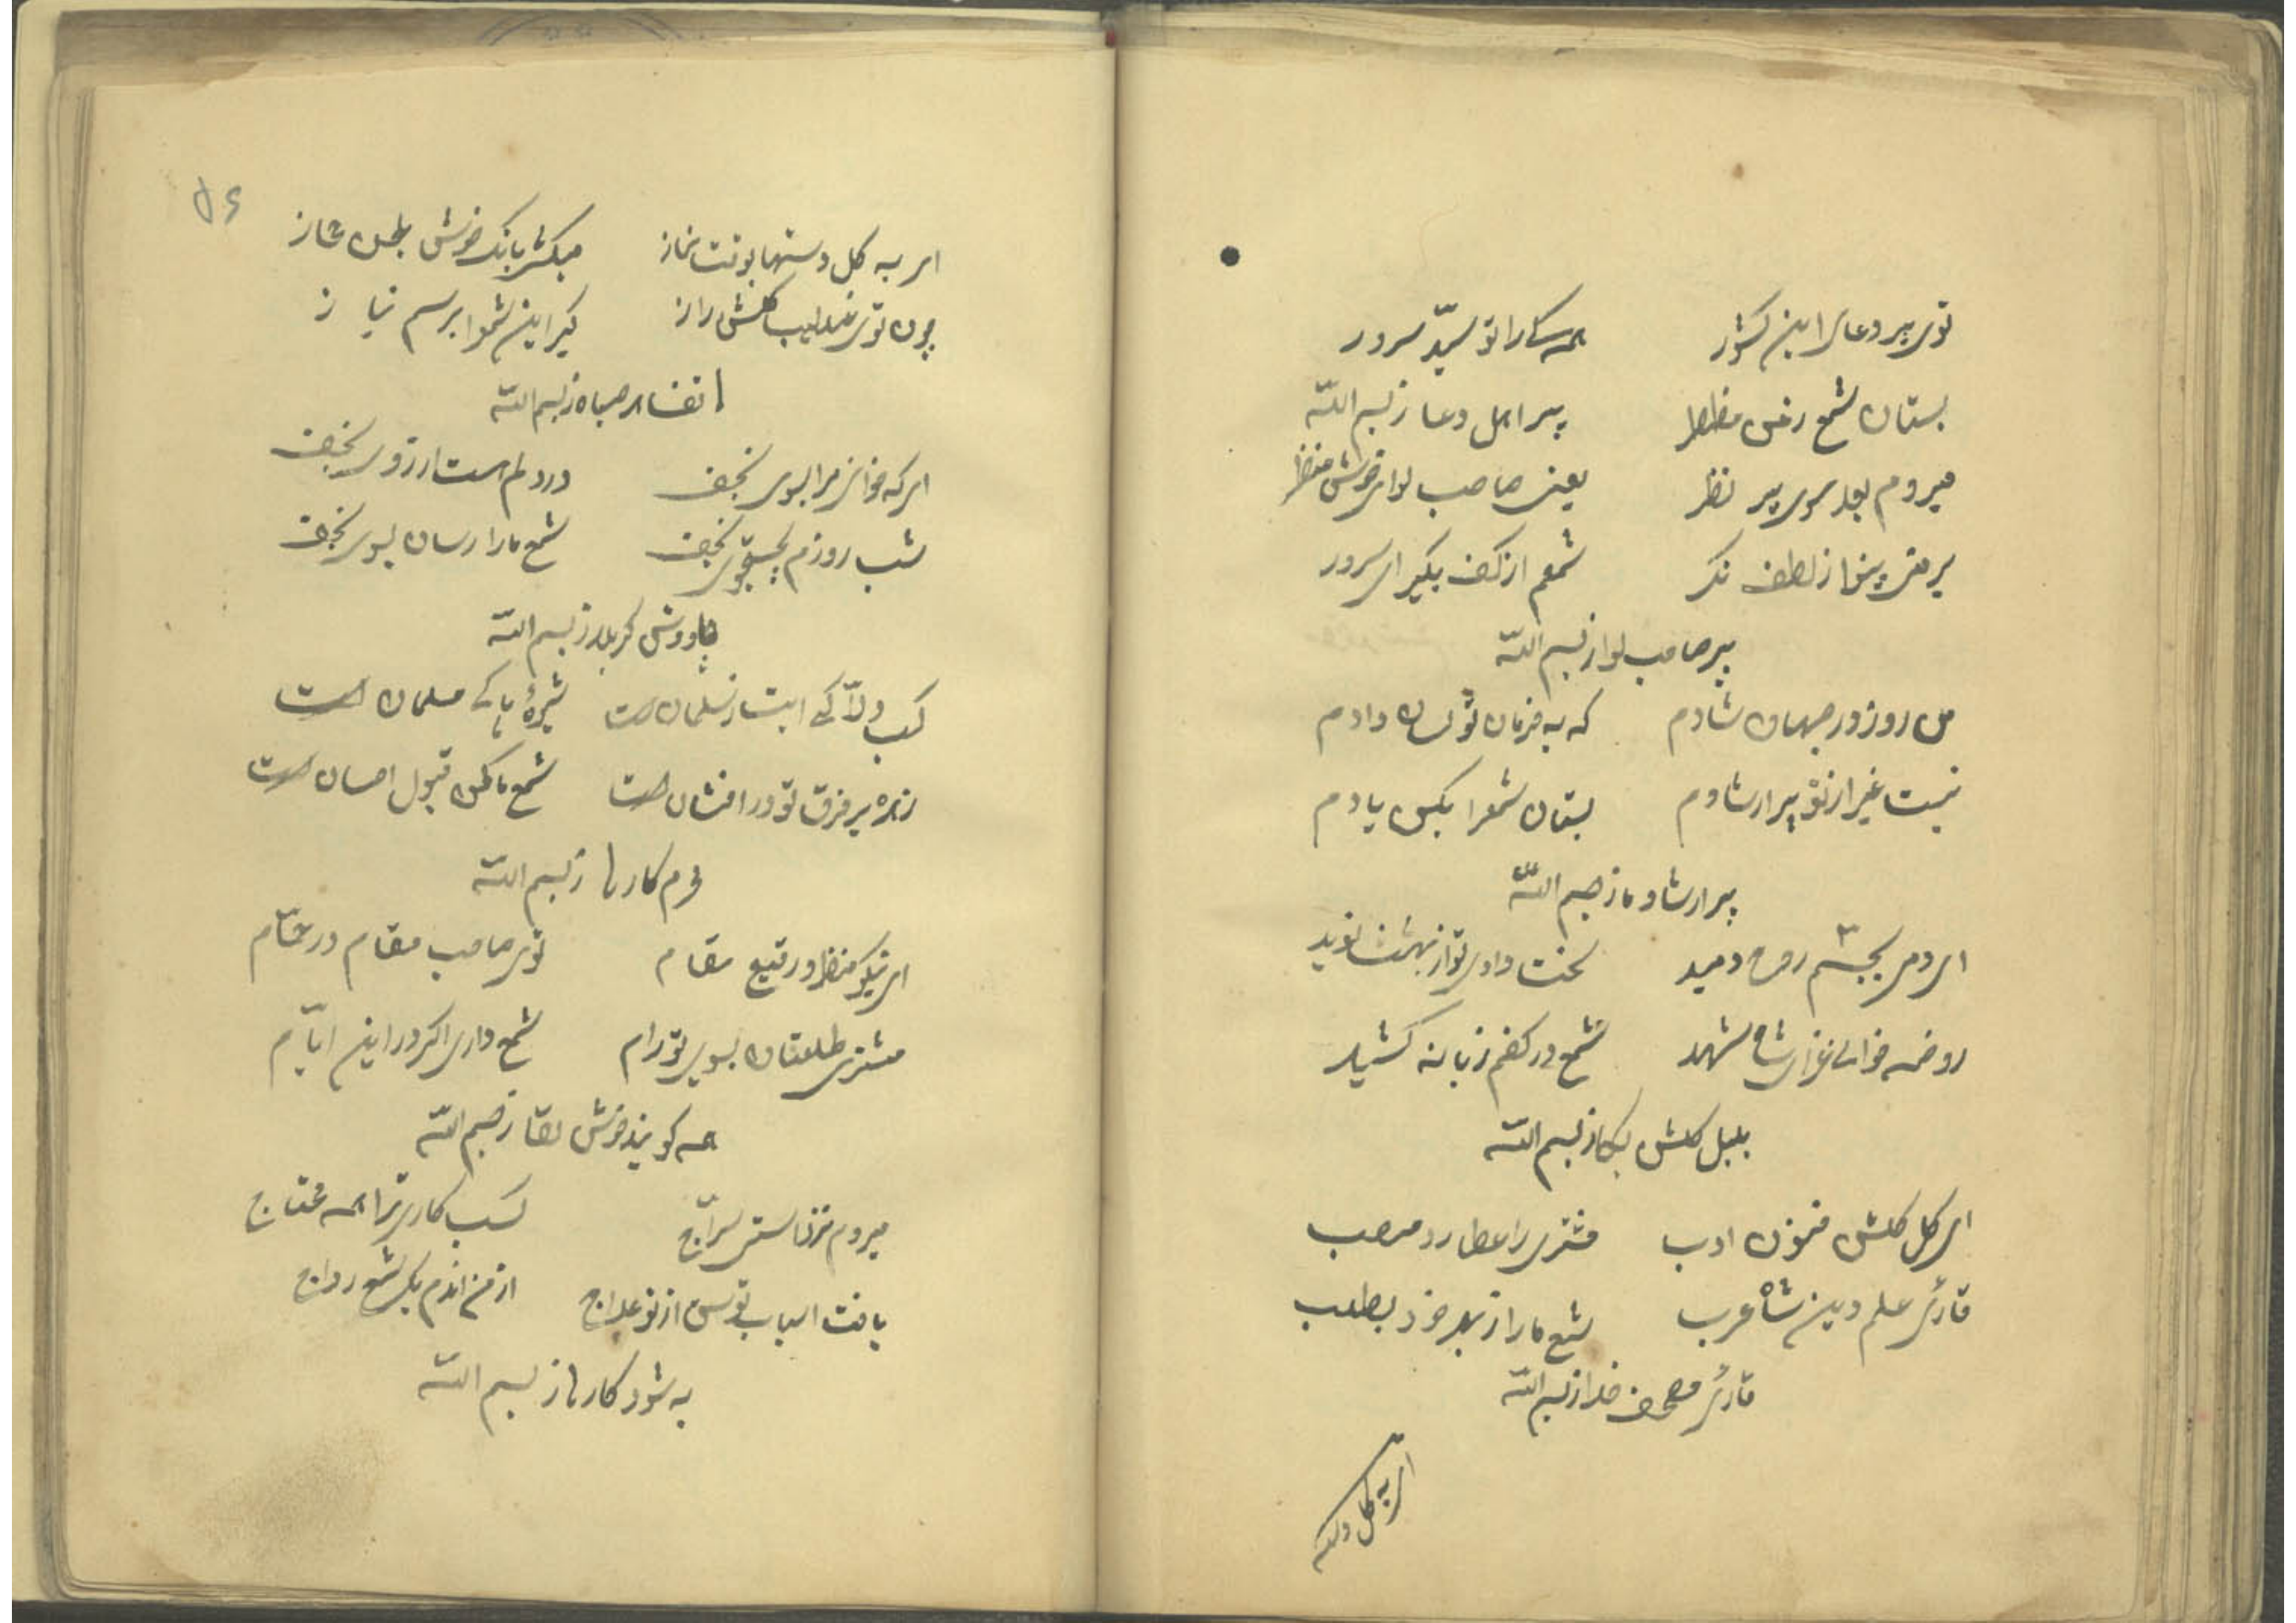 توی پیر دعای این کشور همه سکارا تو سیّد سرور
بستان شمع رخش مظطر پیر اهل دعا ز بسم اللّه
میروم بعد سوی پیر نظر یعنی صاحب لوای خوش منظر
بر من بینوا ز لطف نکر شمعم از کف بکیر ای سرور
پیر صاحب لوا ز بسم اللّه
من روز در جهان شادم که به فرمان تو دادم
نیست غیر از تو پیر ارشادم بستان شمع را بکن یادم
پیر ارشاد ما ز بسم اللّه
ای دمی بجسم روح دمید لحنت داودی تو از بهشت نوید
روضه خوان عزای شاه شهید شمع در کفم زبانه کشید
بلبل کلشن بکا ز بسم اللّه
ای کل کلشن فنون ادب مشتری را عطارد منصب
قارئ علم دین شاه عرب شمع ما را ز بهر خود بطلب
قارئ مصحف خدا ز بسم اللّه
ای به کل دسته
۵۶
ای به کل دستها بوقت نماز میکشی بانک خوش بلحن حجاز
چون توی عندلیب کلشن راز کیر این شمع را برسم نیاز
انفسای صباه ز بسم اللّه
ای که خوانی مرا بسوی نجف در دلم است ارزوی نجف
شب روزم بجستجوی نجف شمع ما را رسان بسوی نجف
چاووش کربلا ز بسم اللّه
کسب دلاّکی ابت ز سلمان است شیوهٔ پاکی مسلمان است
زهره بر فرق تو در افشان است شمع ما کن قبول احسان است
محرم کارها ز بسم اللّه
ای نیکو منظر و رقیع مقام توی صاحب مقام در حمّام
مشتری طلعتان بسوی تو رام شمع داری اکر در این ایّام
همه کویند خوش لقا ز بسم اللّه
میروم نزد سرّاج کسب کاری ترا همه محتاج
یافت اسباب توسن از تو علاج از من اندم بکیر شمع رواج
به شود کارها ز بسم اللّه